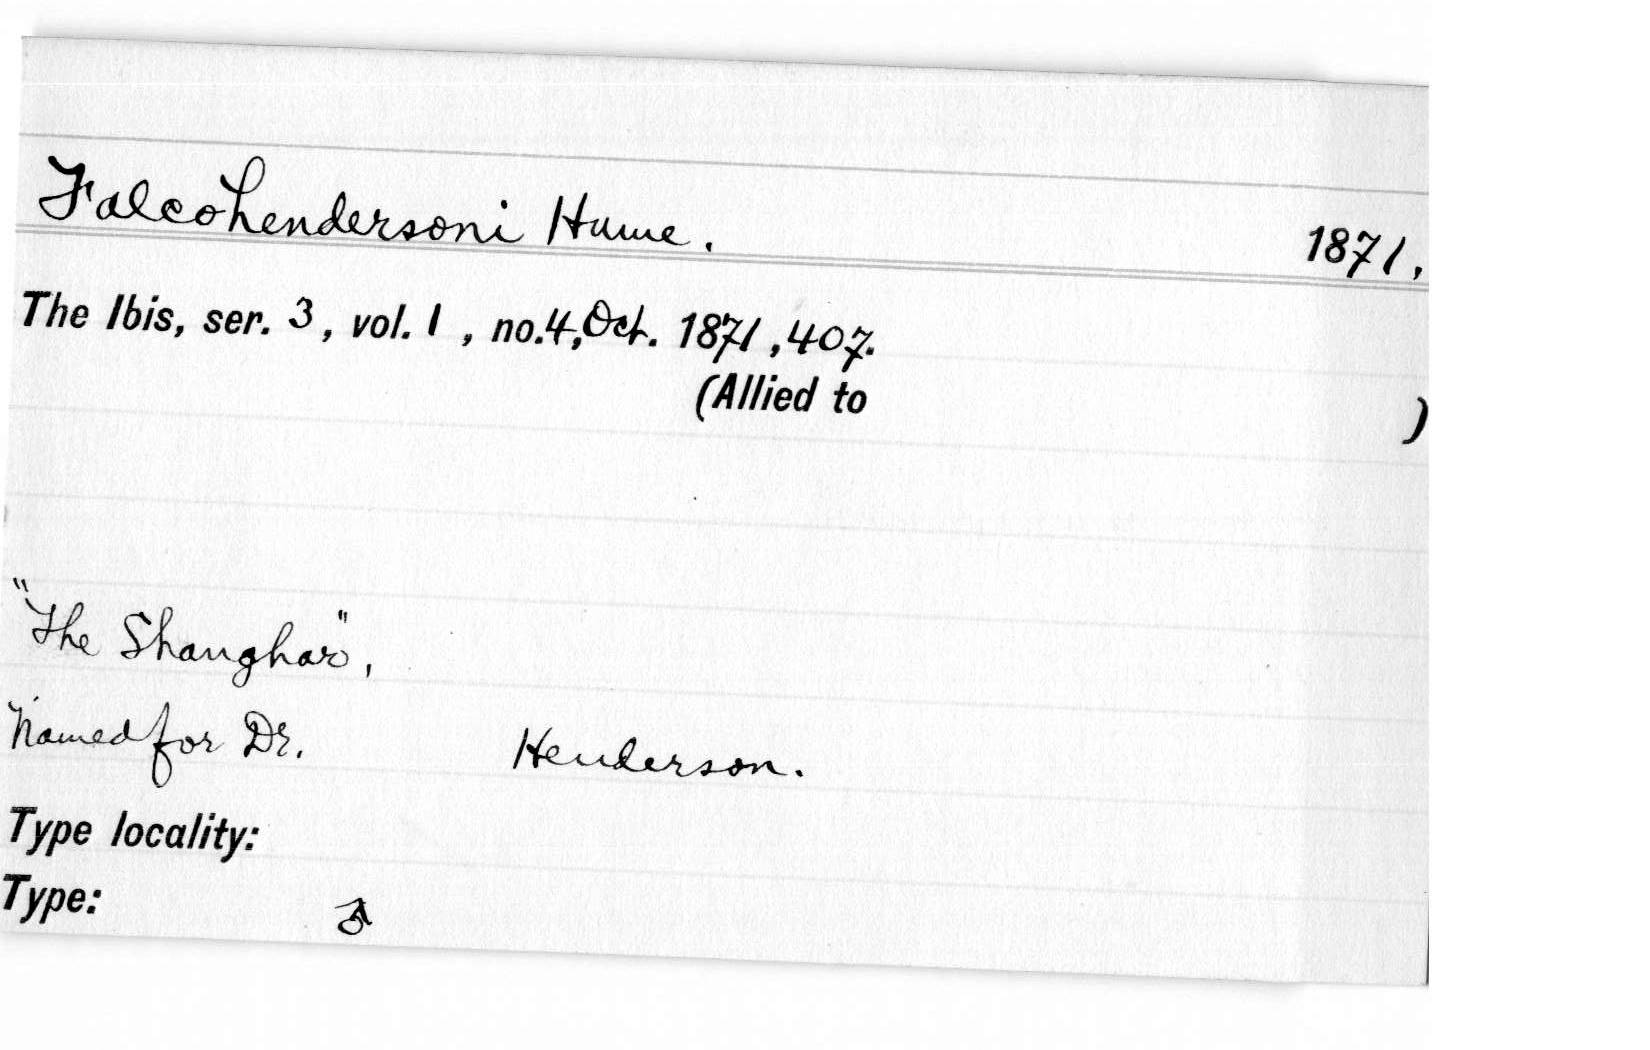 Falco hendersoni Hume. 1871,
The Ibis, ser. 3, vol. 1, no. 4, Oct. 1871, 407.
(Allied to )
"The Shanghar",
Named for Dr. Henderson.
Type locality:
Type: ♂